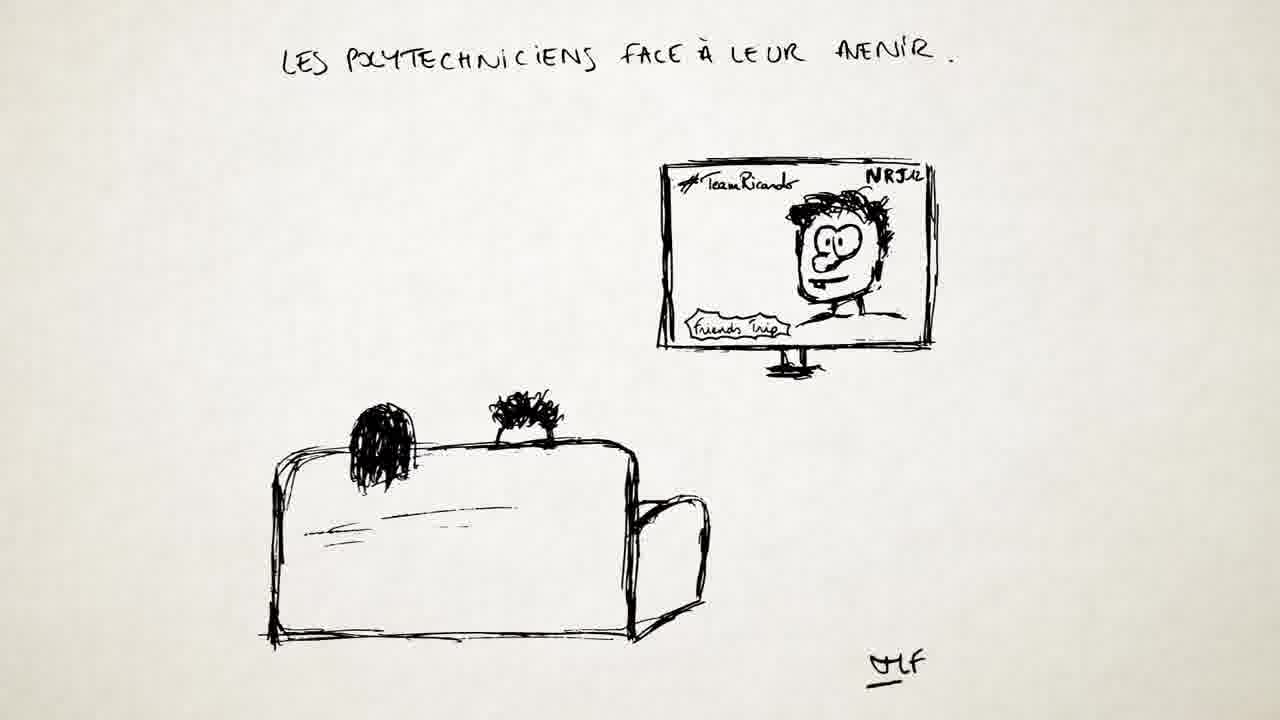 LES POLYTECHNICIENS FACE À LEUR AVENIR.
#TeamRicardo
NRJ12
Friends Trip
JLF